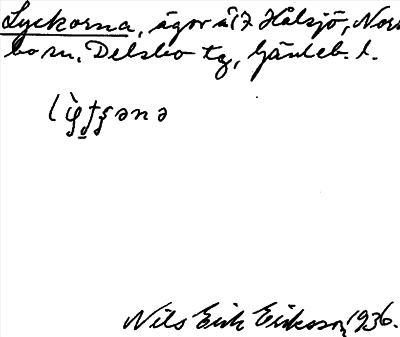 Lyckorna, ägor å 1/7 Hålsjö, Norr
bo sn, Delsbo tg, Gävleb. l.
Nils Erik Eriksson, 1936.